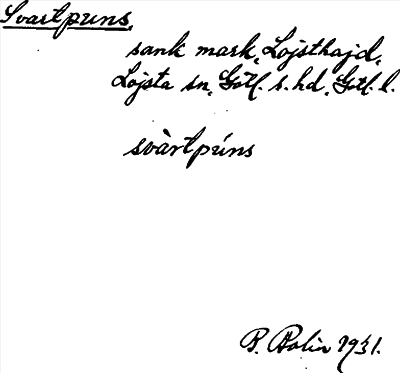 Svartpuns,
sank mark, Lojsthajd,
Lojsta sn, Gotl. s. hd, Gotl. l.
svàrtpúns
B. Bolin 1931.